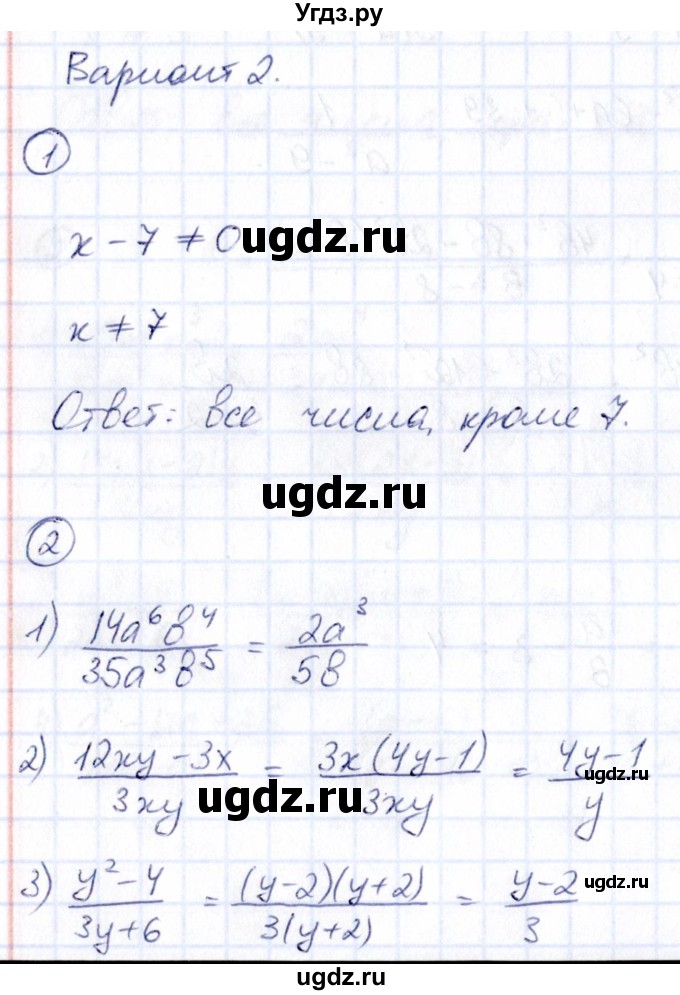 Угдз.ру
Вариант 2.
1
x - 7 ≠ 0
ugdz.ru
x ≠ 7
Ответ: все числа, кроме 7.
ugdz.ru
2
1) 14a⁶b⁴/35a³b⁵ = 2a³/5b
2) 12xy - 3x/3xy = 3x(4y-1)/3xy = 4y-1/y
ugdz.ru
ugdz.ru
3) y² - 4/3y + 6 = (y-2)(y+2)/3(y+2) = y-2/3
ugdz.ru
ugdz.ru